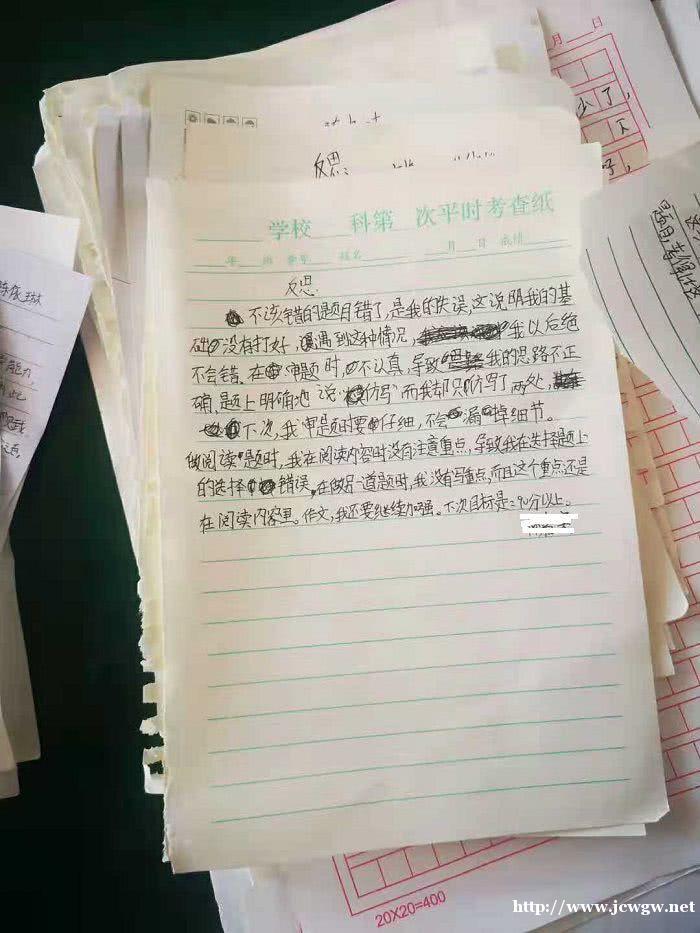 反思:
学校 科第 次平时考查纸
年 班 番号 姓名 月 日 成绩
反思.
不该错的题目错了,是我的失误,这说明我的基
础没有打好,遇到这种情况,我以后绝
不会错.在审题时,不认真,导致我的思路不正
确,题上明确地说“仿写”而我却只仿写了两处,
下次,我审题时要仔细,不会漏掉细节。
做阅读题时,我在阅读内容时没有注意重点,导致我在选择题上
的选择错误,在做另一道题时,我没有写重点,而且这个重点还是
在阅读内容里。作文,我还要继续加强。下次目标是:90分以上。
月 日
少了,
20X20=400
http://www.jcwgw.net